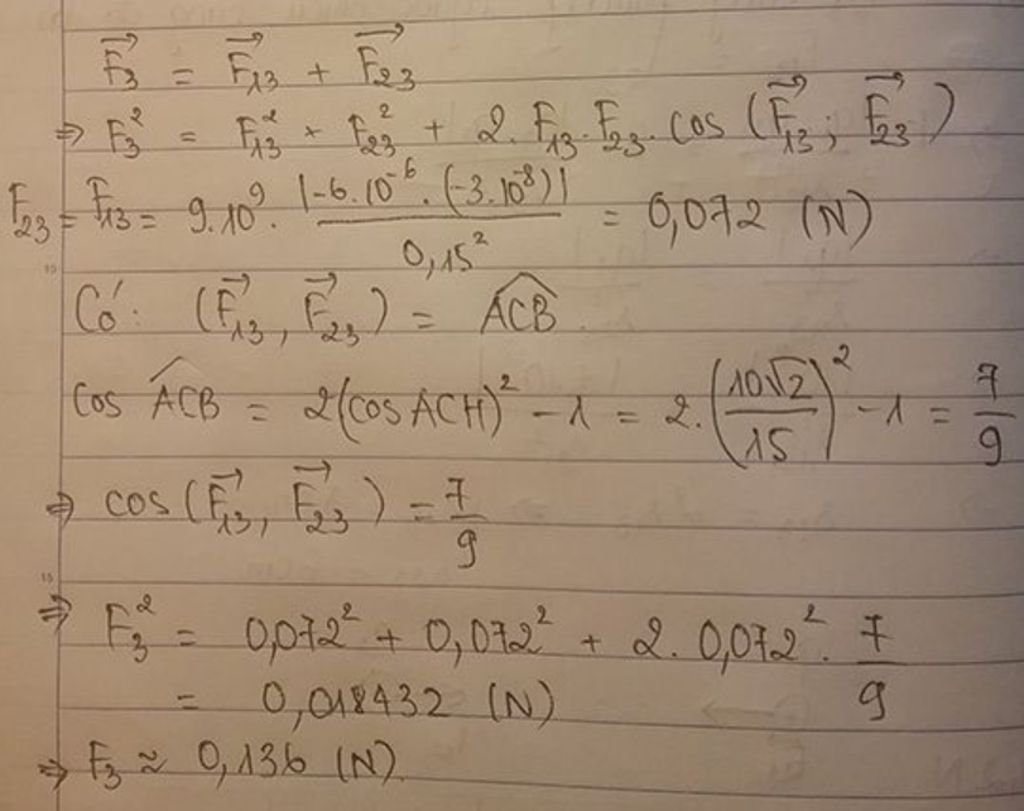 F⃗₃ = F⃗₁₃ + F⃗₂₃
⇒ F₃² = F₁₃² + F₂₃² + 2. F₁₃. F₂₃. cos (F⃗₁₃; F⃗₂₃)
F₂₃ = F₁₃ = 9.10⁹. |-6.10⁻⁶. (-3.10⁻⁸)| / 0,15² = 0,072 (N)
10
Có: (F⃗₁₃, F⃗₂₃) = \widehat{ACB}
cos \widehat{ACB} = 2(cos ACH)² - 1 = 2. (10√2 / 15)² - 1 = 7/9
⇒ cos (F⃗₁₃, F⃗₂₃) = 7/9
15
⇒ F₃² = 0,072² + 0,072² + 2. 0,072². 7/9
= 0,018432 (N)
⇒ F₃ ≈ 0,136 (N)